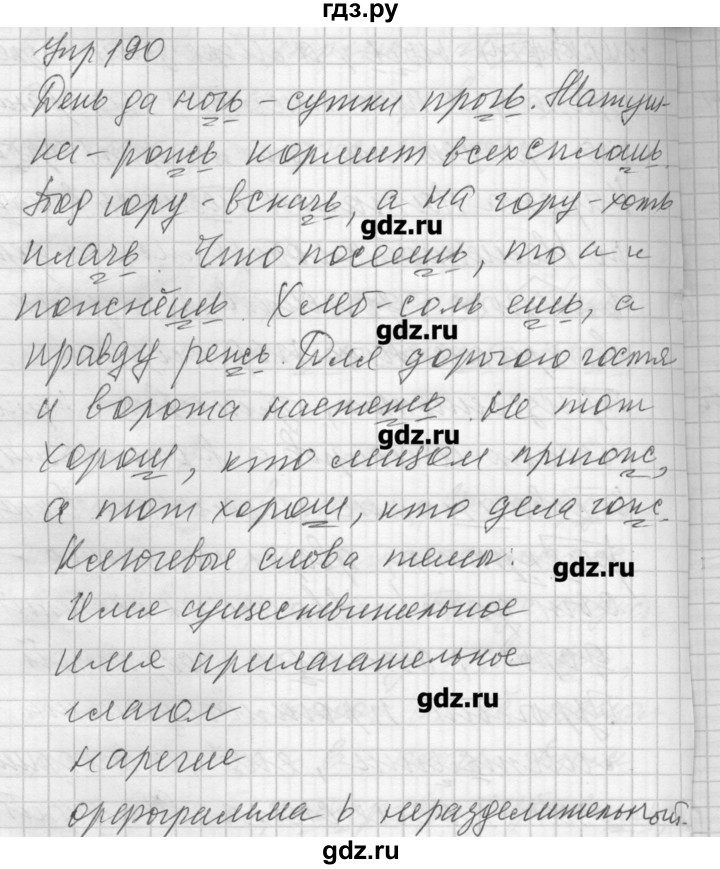 гдз.ру
Упр 190
День да ночь - сутки прочь. Матуш-
ка - рожь кормит всех сплошь.
Под гору - вскачь, а на гору - хоть
gdz.ru
плачь. Что посеешь, то и
пожнёшь. Хлеб-соль ешь, а
gdz.ru
правду режь. Для дорогого гостя
и ворота настежь. Не тот
gdz.ru
хорош, кто лицом пригож,
а тот хорош, кто дела гож.
Ключевые слова темы:
gdz.ru
Имя существительное
имя прилагательное
глагол
gdz.ru
наречие
орфограмма ь неразделительный.
gdz.ru